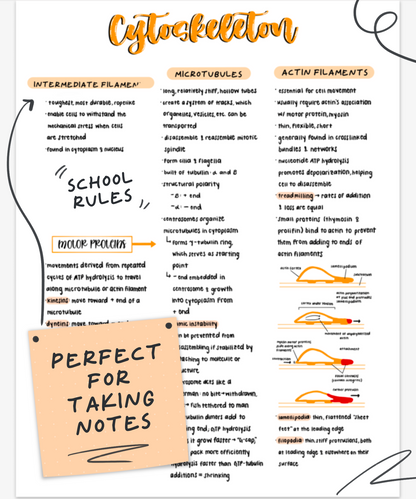 Cytoskeleton
INTERMEDIATE FILAMEN
toughest, most durable, ropelike
enable cells to withstand the
mechanical stress when cells
are stretched
found in cytoplasm & nucleus
"SCHOOL
RULES"
MOTOR PROTEINS
movements derived from repeated
cycles of ATP hydrolysis to travel
along microtubule or actin filament
kinesins: move toward + end of a
microtubule
dyneins: move toward
PERFECT
FOR
TAKING
NOTES
MICROTUBULES
long, relatively stiff, hollow tubes
create a system of tracks, which
organelles, vesicles, etc. can be
transported
disassemble & reassemble mitotic
spindle
form cilia & flagella
built of tubulin - α and β
structural polarity
-β: + end
-α: - end
centrosomes organize
microtubules in cytoplasm
↳ forms γ-tubulin ring,
which serves as starting
point
↳ - end embedded in
centrosome & growth
into cytoplasm from
+ end
instability
be prevented from
stabilized by
to molecule or
acts like a
no bite → withdrawn,
fish tethered to man
tubulin dimers add to
end, ATP hydrolysis
it grows faster → "
pack more efficiently
faster than ATP-tubulin
additions = shrinking
ACTIN FILAMENTS
essential for cell movement
usually require actin's association
w/ motor protein, myosin
thin, flexible, short
generally found in crosslinked
bundles & networks
nucleotide ATP hydrolysis
promotes depolarization, helping
cell to disassemble
treadmilling → rates of addition
& loss are equal
small proteins (thymosin &
profilin) bind to actin to prevent
them from adding to ends of
actin filaments
actin cortex
lamellipodia: thin, flattened "sheet
feet" at the leading edge
filopodia: thin, stiff protrusions, both
at leading edge & elsewhere on their
surface